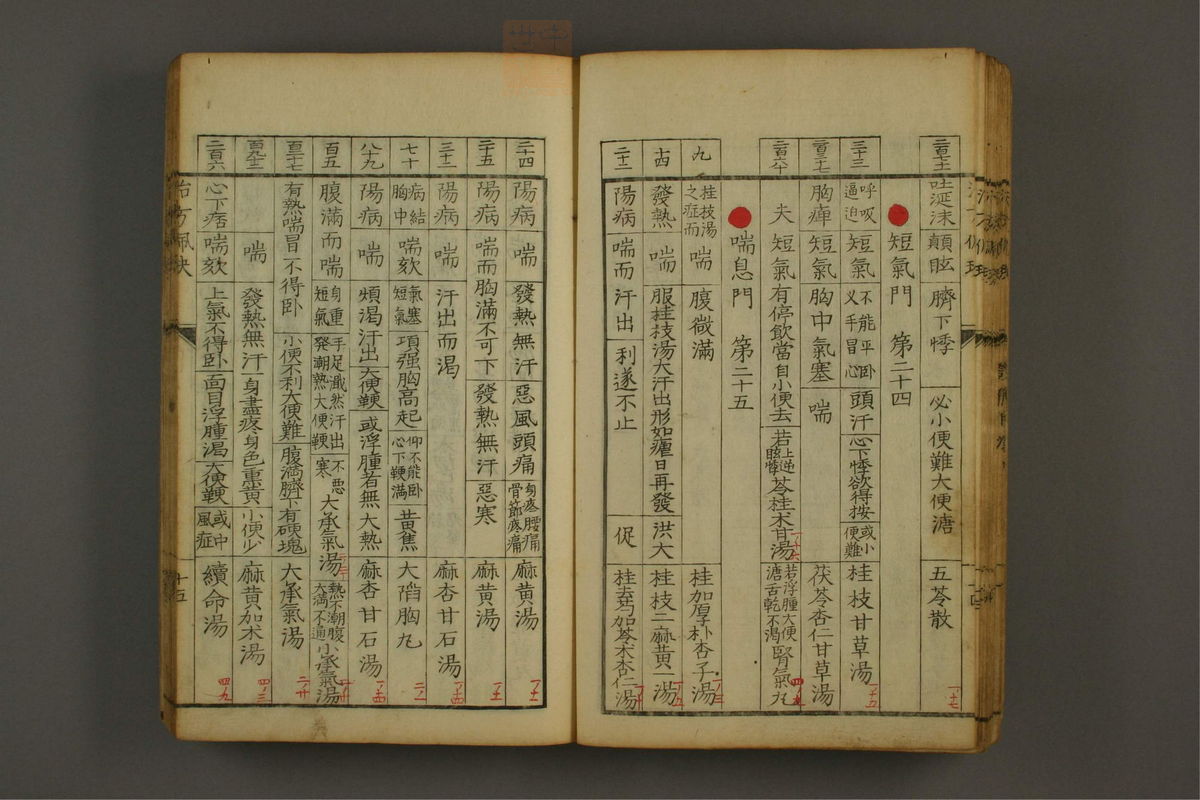 吐涎沫 顛眩 臍下悸 必小便難大便溏 五苓散
短氣門 第二十四
三十三 呼吸逼迫 短氣 不能平臥 叉手冒心 頭汗 心下悸欲得按 或小便難 桂枝甘草湯
胸痺 短氣 胸中氣塞 喘 茯苓杏仁甘草湯
夫 短氣 有停飲當自小便去 若上逆眩悸 苓桂朮甘湯 若浮腫大便溏舌乾不渴 腎氣丸
喘息門 第二十五
九 桂枝湯之症而 喘 腹微滿 桂加厚朴杏子湯
十四 發熱 喘 服桂枝湯大汗出形如瘧日再發 洪大 桂枝二麻黃一湯
二十二 陽病 喘而 汗出 利遂不止 促 桂去芍加苓朮杏仁湯
二十四 陽病 喘 發熱無汗 惡風頭痛 身疼腰痛骨節疼痛 麻黃湯
二十五 陽病 喘而 胸滿不可下 發熱無汗 惡寒 麻黃湯
三十二 陽病 喘 汗出而渴 麻杏甘石湯
七十 病結胸中 喘欬 氣塞短氣 項强胸高起 仰不能臥心下鞕滿 黃蕉 大陷胸丸
八十九 陽病 喘 煩渴汗出 大便鞕 或浮腫者無大熱 麻杏甘石湯
百五 腹滿而喘 身重短氣 手足濈然汗出 發潮熱大便鞕 不惡寒 大承氣湯 熱不潮腹大滿不通 小承氣湯
百二十七 有熱喘冒不得臥 小便不利大便難 腹滿臍下有硬塊 大承氣湯
百九十二 喘 發熱無汗 身盡疼身色熏黃 小便少 麻黃加朮湯
二百六 心下痞 喘欬 上氣不得臥 面目浮腫渴 大便鞕 或中風症 續命湯
十五